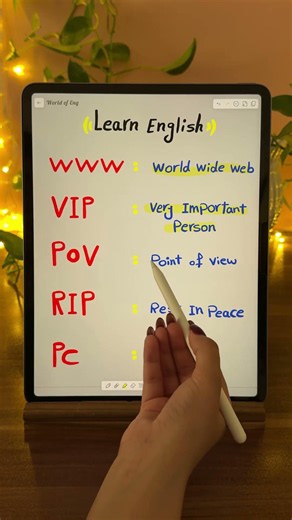 World of Eng
Learn English
WWW : World wide web
VIP : Very Important
Person
POV : Point of view
RIP : In Peace
PC :